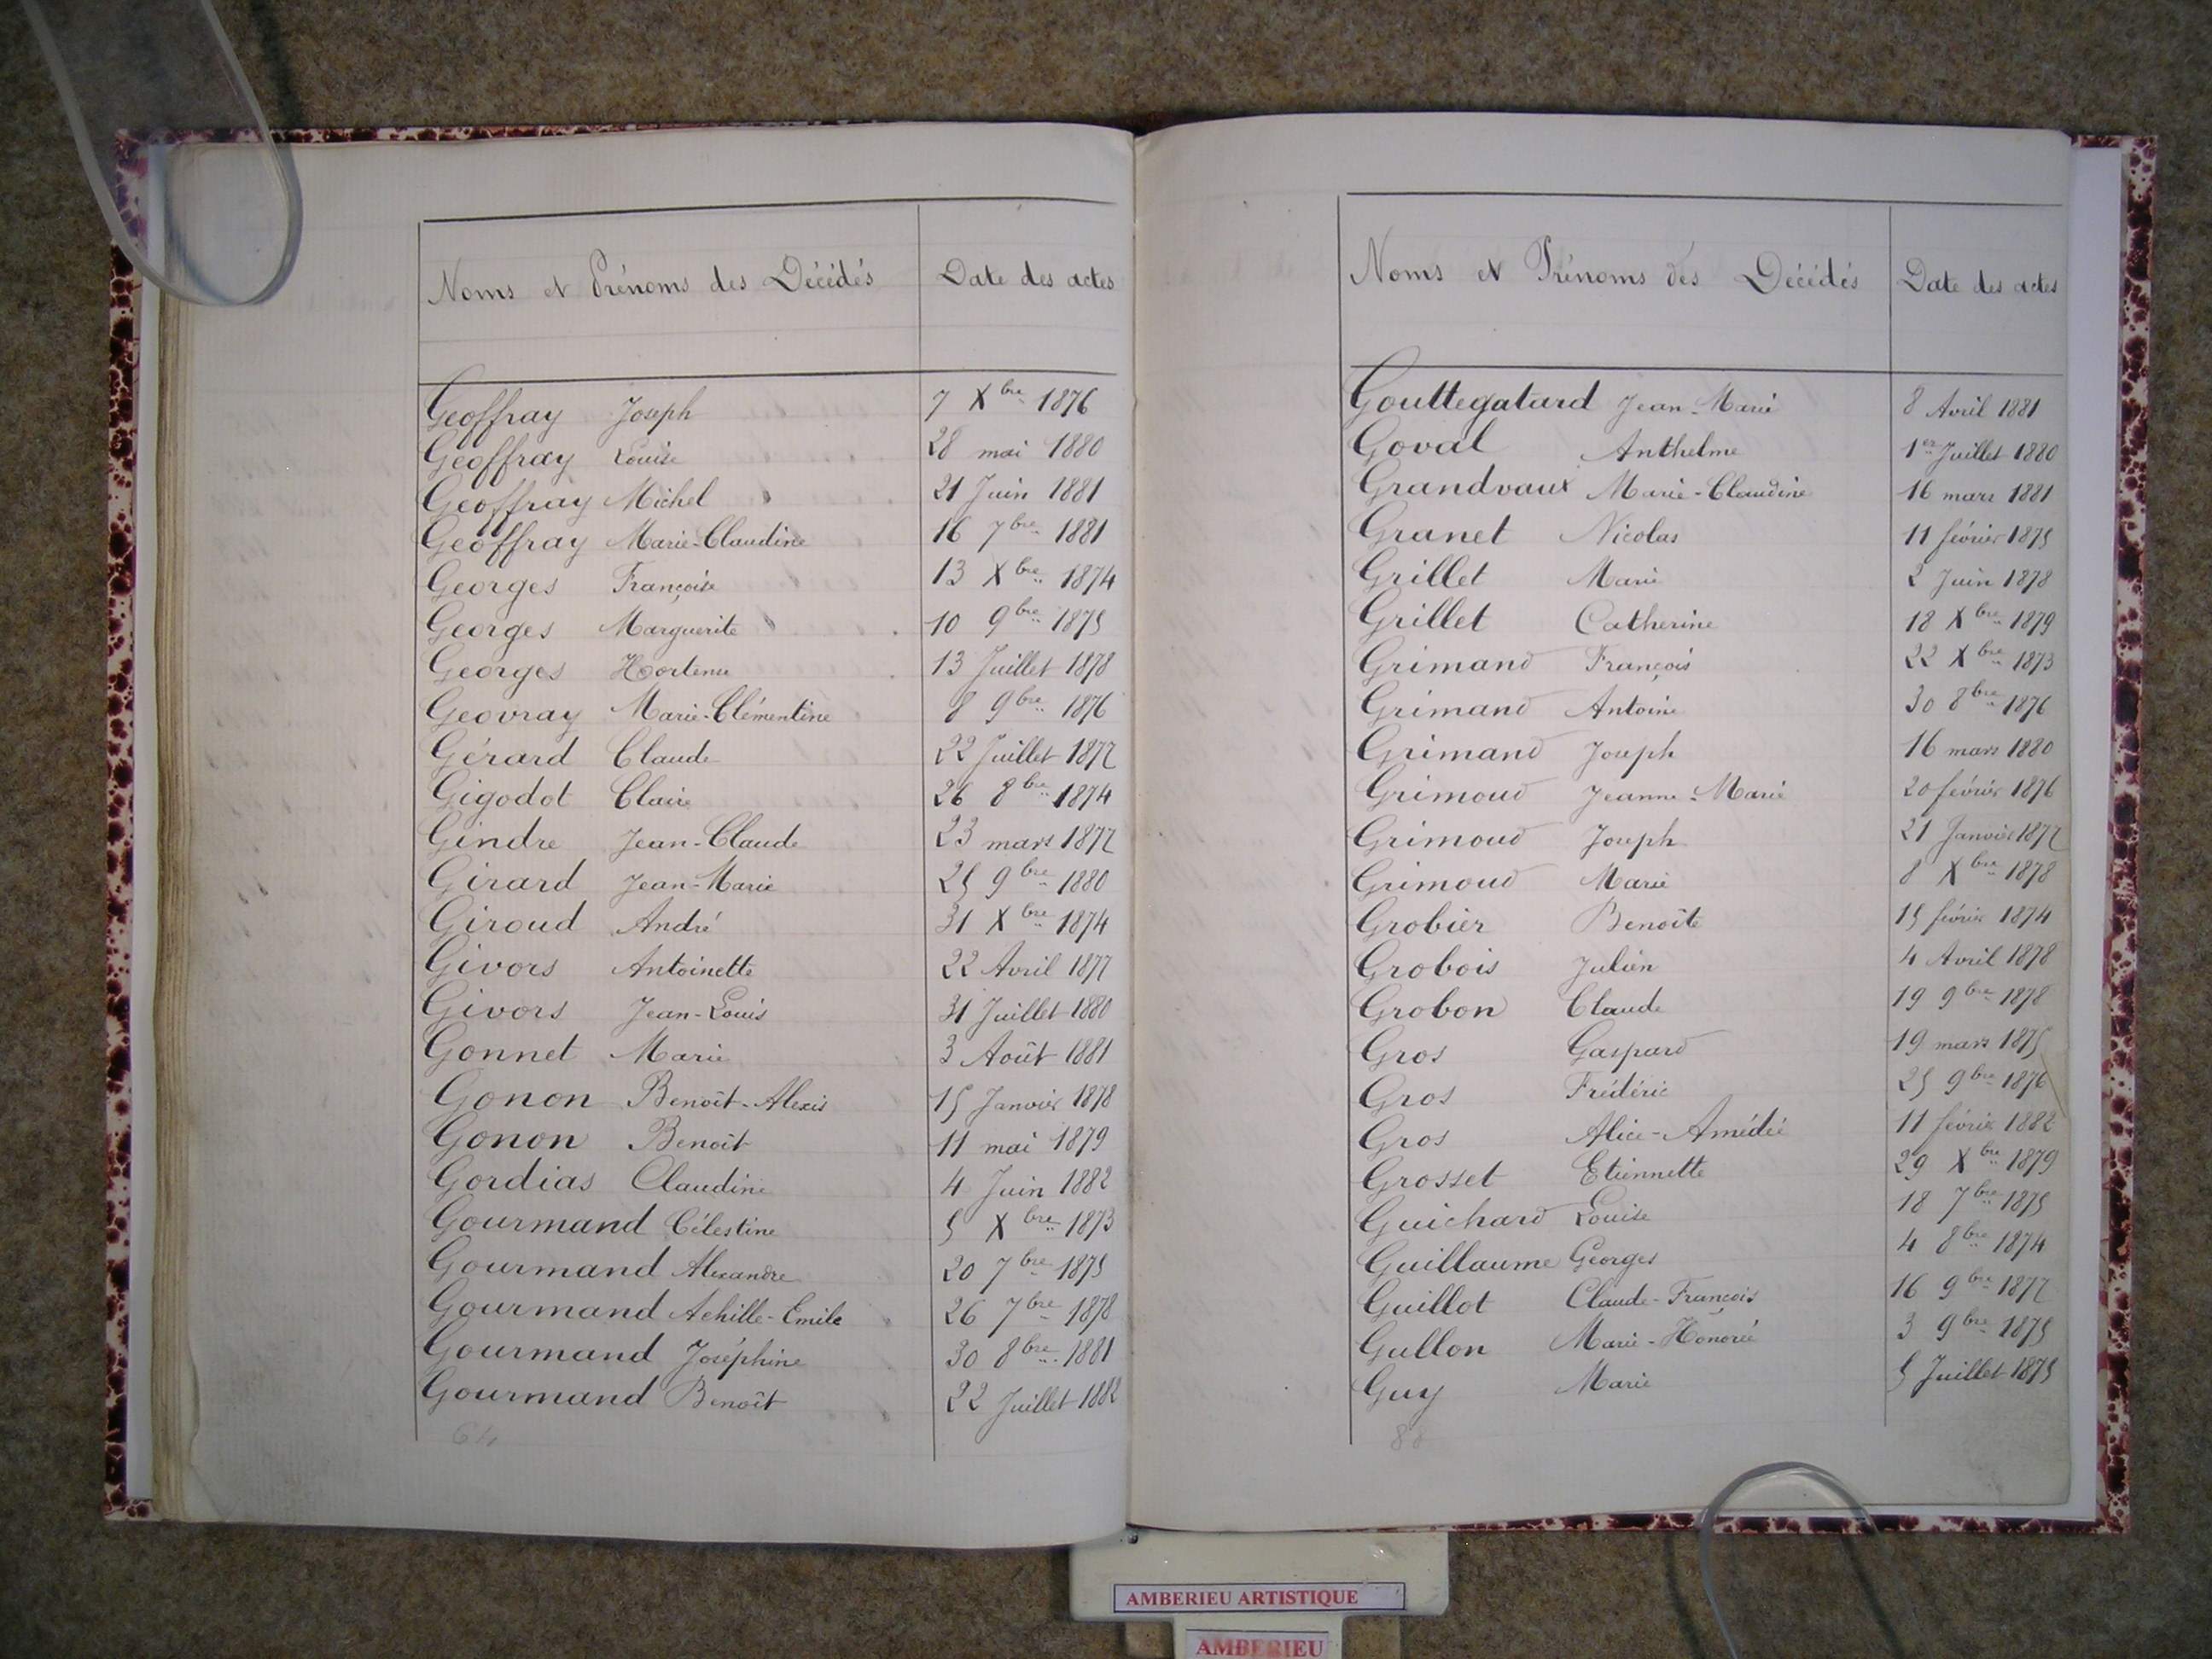 Noms et Prénoms des Décédés Date des actes
Geoffray Joseph 7 Xbre 1876
Geoffray Louise 28 mai 1880
Geoffray Michel 21 Juin 1881
Geoffray Marie-Claudine 16 7bre 1881
Georges Françoise 13 Xbre 1874
Georges Marguerite 10 9bre 1875
Georges Hortense 13 Juillet 1878
Geovray Marie-Clémentine 8 9bre 1876
Gérard Claude 22 Juillet 1877
Gigodot Claire 26 8bre 1874
Gindre Jean-Claude 23 mars 1877
Girard Jean-Marie 25 9bre 1880
Giroud André 31 Xbre 1874
Givors Antoinette 22 Avril 1877
Givors Jean-Louis 31 Juillet 1880
Gonnet Marie 3 Août 1881
Gonon Benoît-Alexis 15 Janvier 1878
Gonon Benoît 11 mai 1879
Gordias Claudine 4 Juin 1882
Gourmand Célestine 5 Xbre 1873
Gourmand Alexandre 20 7bre 1875
Gourmand Achille-Emile 26 7bre 1878
Gourmand Joséphine 30 8bre 1881
Gourmand Benoît 22 Juillet 1882
64
Noms et Prénoms des Décédés Date des actes
Gouttegatard Jean-Marie 8 Avril 1881
Goval Anthelme 1er Juillet 1880
Grandvaux Marie-Claudine 16 mars 1881
Granet Nicolas 11 février 1875
Grillet Marie 2 Juin 1878
Grillet Catherine 18 Xbre 1879
Grimand François 22 Xbre 1873
Grimand Antoine 30 8bre 1876
Grimand Joseph 16 mars 1880
Grimoud Jeanne-Marie 20 février 1876
Grimoud Joseph 21 Janvier 1877
Grimoud Marie 8 Xbre 1878
Grobier Benoîte 15 février 1874
Grobois Julien 4 Avril 1878
Grobon Claude 19 9bre 1878
Gros Gaspard 19 mars 1875
Gros Frédéric 25 9bre 1876
Gros Alice-Amédée 11 février 1882
Grosset Etiennette 29 Xbre 1879
Guichard Louise 18 7bre 1875
Guillaume Georges 4 8bre 1874
Guillot Claude-François 16 9bre 1877
Gullon Marie-Honorée 3 9bre 1875
Guy Marie 5 Juillet 1875
88
AMBERIEU ARTISTIQUE
AMBERIEU